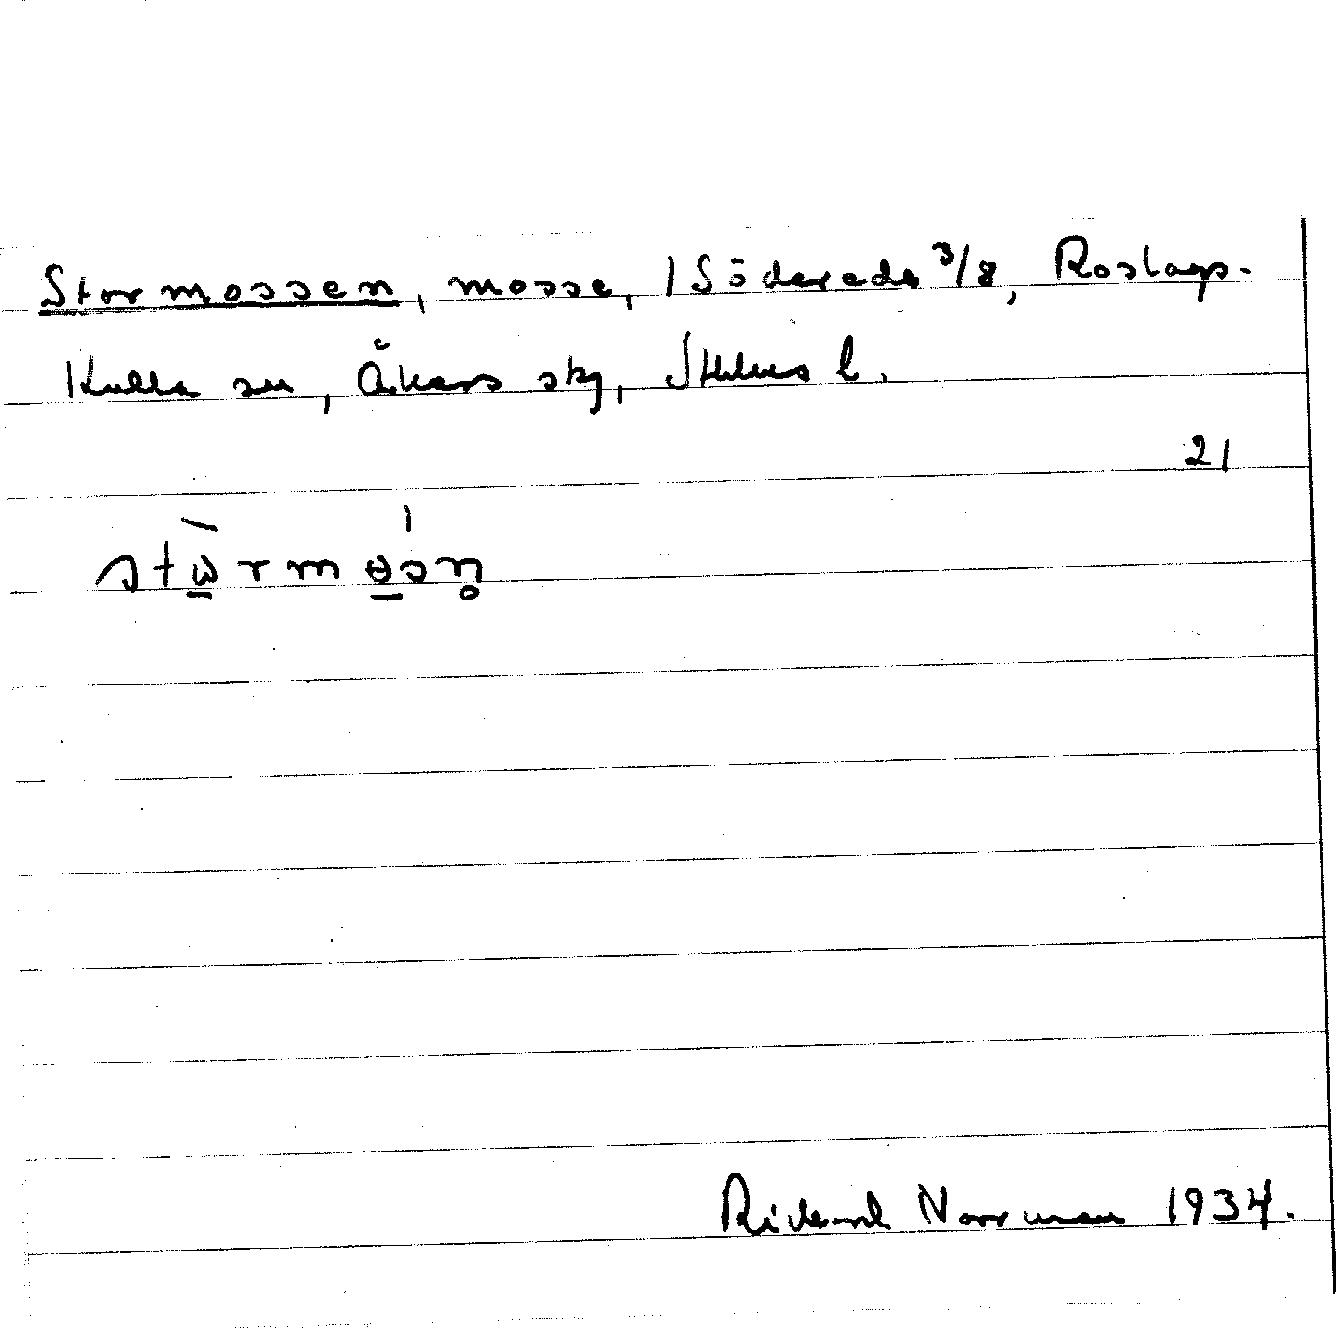 Stormossen, mosse, 1 Söderede 3/8, Roslags-
Kulla sn, Åkers skg, Sthlms l.
21
Rickard Norrman 1934.